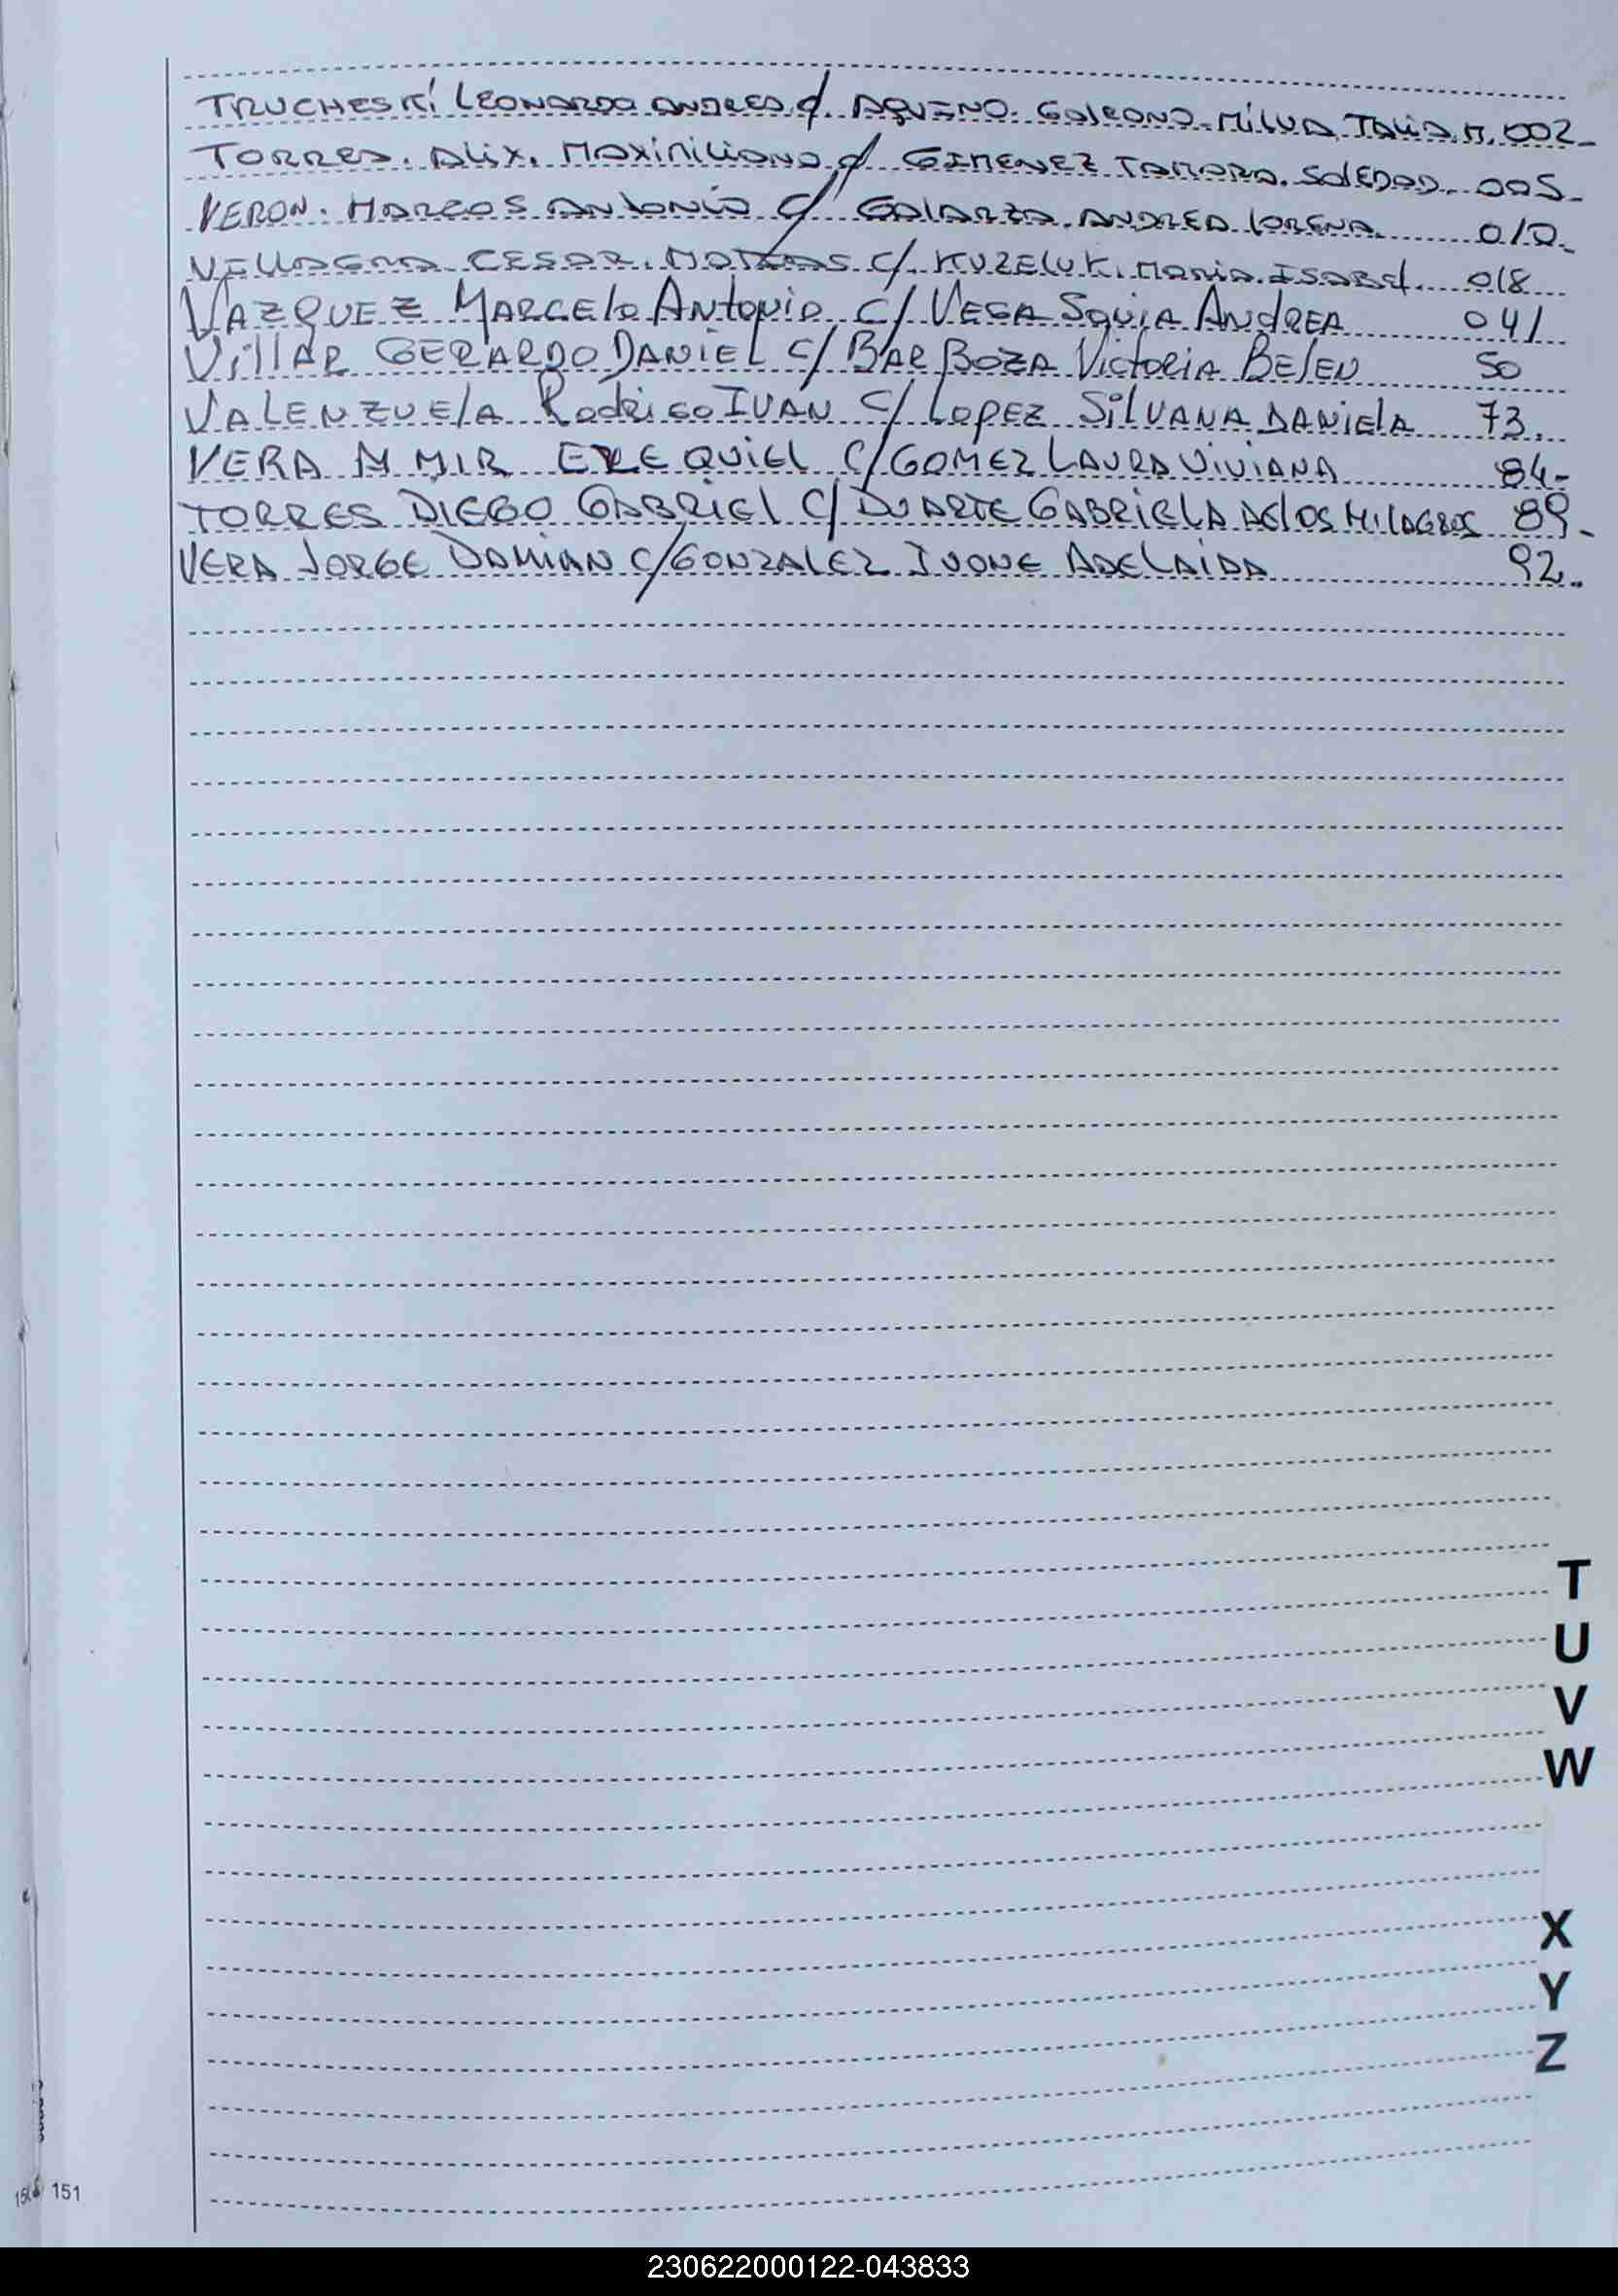 TRUCHESKi LEONARDO ANDRES c/. AQUINO. GALEANO. MilVA TALIA. M. 002-
TORRES. Alix. MAXiMiliANO c/ GIMENEZ TAMARA. SOLEDAD. 005-
VERON. MARCOS ANTONIO c/ GALARZA. ANDREA LORENA. 010-
VILLAGRA CESAR. MATIAS c/. KUZELUK. MARIA. ISABEL. 018
VAZQUEZ MARCElo ANtoNio c/ VEGA SANDREA 041
VillAR GERARDO DANIEL c/ BARBOZA VictoRIA BElEN 50
VALENZUElA RodRiGO IVAN c/ LOPEZ SilVANA DANIElA 73.
VERA AMIR EZEQUIEL c/ GOMEZ LAURA VIVIANA 84-
TORRES DIEGO GABRIEL c/ DUARTE GABRIELA DE lOS MILAGROS 89.
VERA JORGE DAMIAN c/ GONZALEZ IVONE ADELAIDA 92.
T
U
V
W
X
Y
Z
151
230622000122-043833